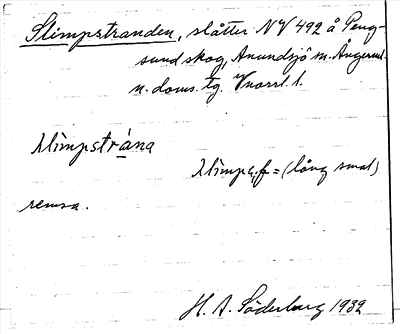 Slimpstranden, slåtter NV 492 å Peng-
sund skog, Anundsjö sn. Ångerml.
n. doms. tg. Vnorrl. l.
slimpstrána
slimpa, f = (lång smal)
remsa.
H. A. Söderberg 1932